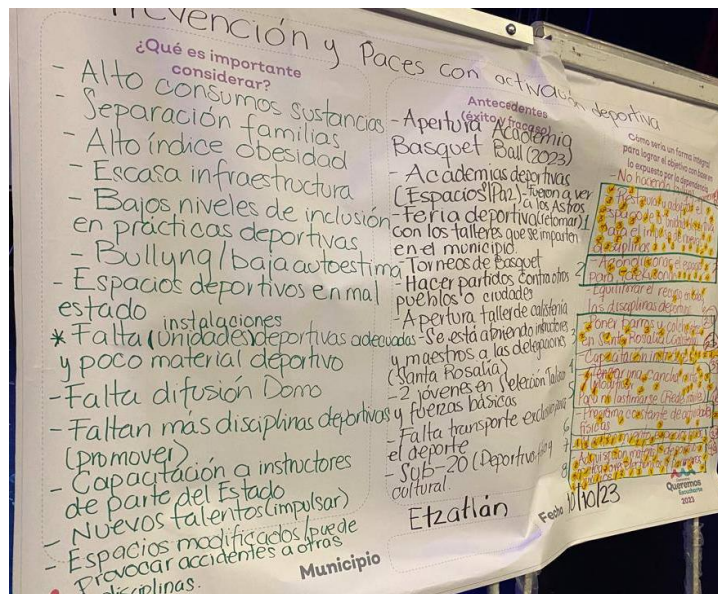 Prevención y Paces con activación deportiva
¿Qué es importante
considerar?
- Alto consumos sustancias
- Separación familias
- Alto índice obesidad
- Escasa infraestructura
- Bajos niveles de inclusión
en prácticas deportivas
- Bullyng/baja autoestima
- Espacios deportivos en mal
estado
instalaciones
* Falta (Unidades) deportivas adecuadas
y poco material deportivo
- Falta difusión Domo
- Faltan más disciplinas deportivas
(promover)
- Capacitación a instructores
de parte del Estado
- Nuevos talentos (impulsar)
- Espacios modificados/puede
provocar accidentes a otras
disciplinas.
Antecedentes
(éxito y fracaso)
- Apertura Academia
Basquet Ball (2023)
- Academias deportivas
(Espacios Paz). Fueron a ver
a los Astros
- Feria deportiva (retomar)
con los talleres que se imparten
en el municipio.
- Torneos de Basquet
- Hacer partidos contra otros
pueblos o ciudades
- Apertura taller de calistenia
- Se está abriendo instructores
y maestros a las delegaciones
(Santa Rosalía)
- 2 jóvenes en Selección Jalisco
y fuerzas básicas
- Falta transporte
el deporte
- Sub-20 (Deportivo
cultural.
Cómo sería un forma integral
para lograr el objetivo con base en
lo expuesto por la dependencia
- No haciendo
1
2
para
- Equilibrar el recurso en
las disciplinas deportivas
Poner barras y
en Santa Rosalía
- Capacitación
una cancha
para no lastimarse
- Programa constante de
físicas
6
7
8
Municipio
Etzatlán
Fecha 10/10/23
Queremos
Escucharte
2023